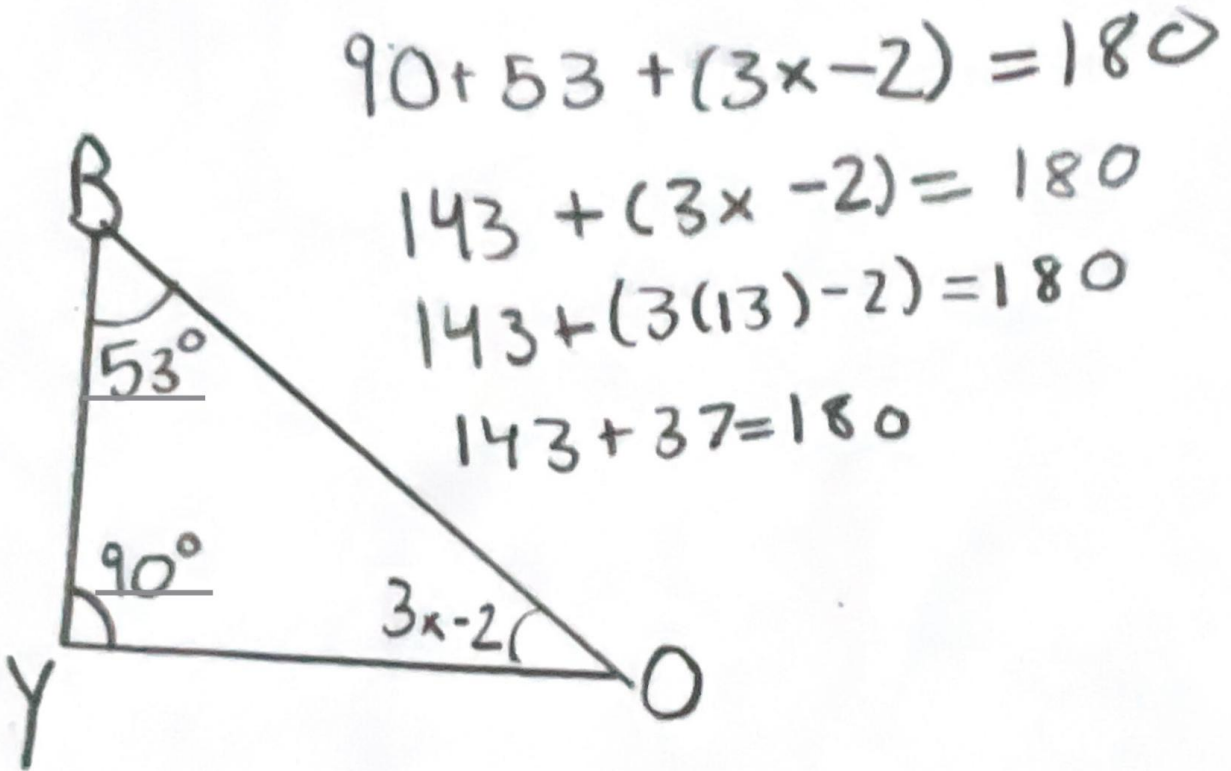 90+ 53 + (3x-2) = 180
143 + (3x -2) = 180
143+(3(13)-2) =180
143+37=180
B
53°
90°
3x-2
Y
O